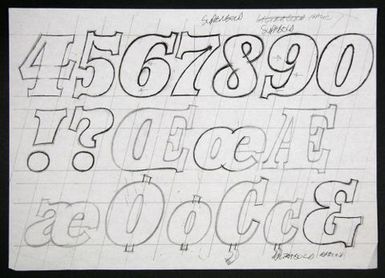 SUPERBOLD
SUPERBOLD
4567890
!?ŒœÆ
æØøÇç&